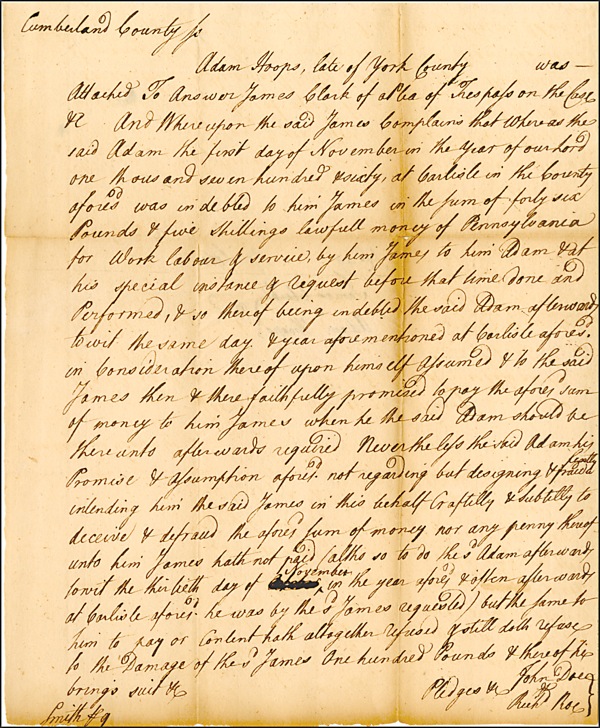 Cumberland County ss
Adam Hoops, late of York County was —
Attached To Answer James Clark of a Plea of Trespass on the Case
&c And Whereupon the said James Complains that Whereas the
said Adam the first day of November in the Year of our Lord
one thousand seven hundred & sixty, at Carlisle in the County
afores.d was indebted to him James in the sum of forty six
Pounds & five shillings lawfull money of Pennsylvania
for Work labour & service, by him James to him Adam & at
his special instance & request before that time done and
Performed, & so thereof being indebted the said Adam afterwards
towit the same day & year aforementioned at Carlisle afores.d
in Consideration thereof upon himself Assumed & to the said
James then & there faithfully promised to pay the afores.d sum
of money to him James when he the said Adam should be
thereunto afterwards required Nevertheless the said Adam his
Promise & Assumption afores.d not regarding but designing & fraudu
lently
intending him the said James in this behalf Craftily & subtilly to
deceive & defraud the afores.d sum of money nor any penny thereof
unto him James hath not paid (altho so to do the s.d Adam afterwards
towit the thirtieth day of November in the year afores.d & often afterwards
at Carlisle afores.d he was by the s.d James requested) but the same to
him to pay or Content hath altogether refused & still doth refuse
to the Damage of the s.d James One hundred Pounds & thereof he
brings suit &c
Pledges &c John Doe
Rich.d Roe
Smith